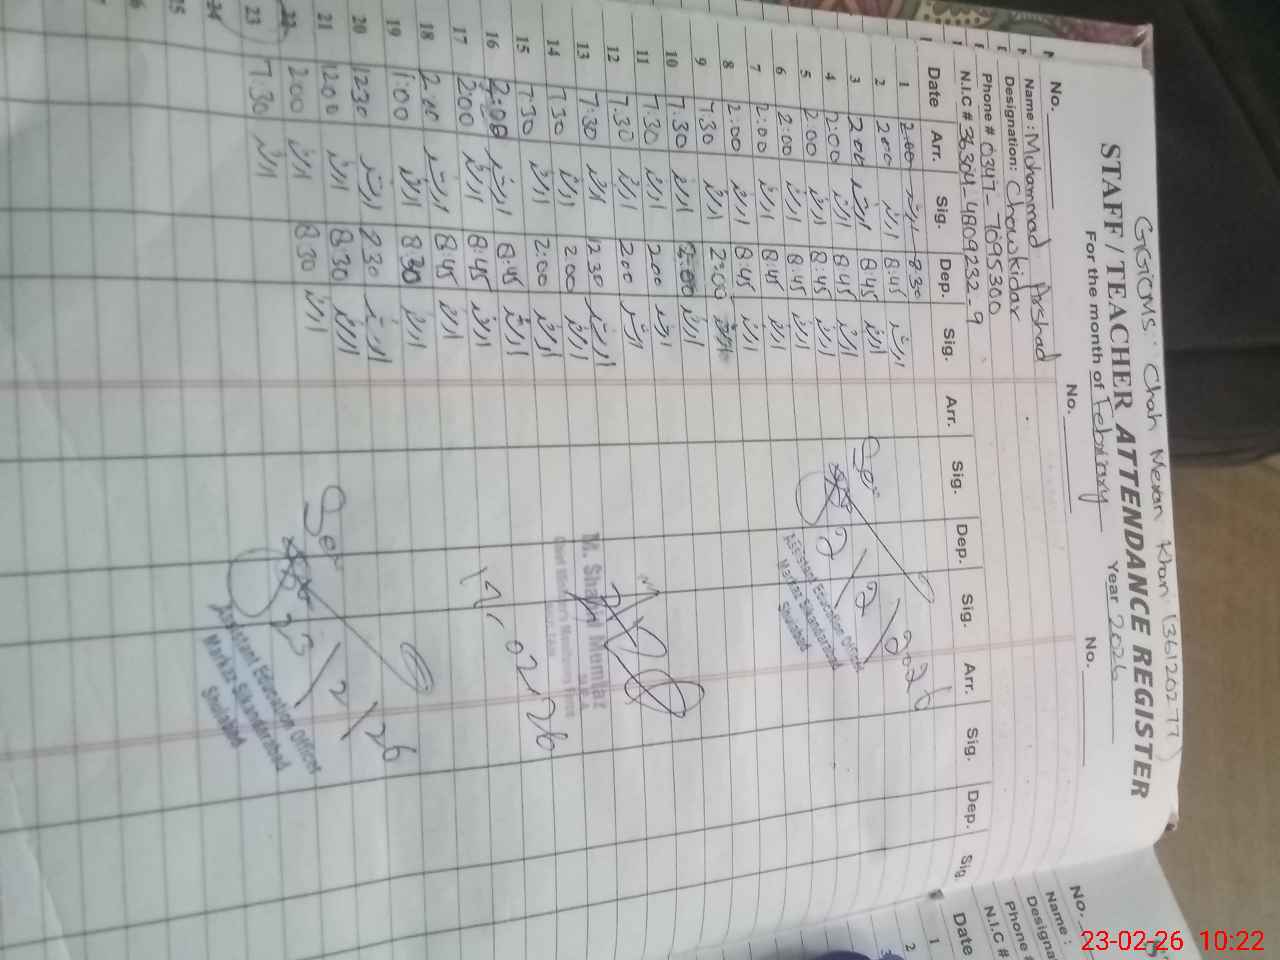 GGCMS Chah Meran Khan (36120277)
STAFF / TEACHER ATTENDANCE REGISTER
For the month of February Year 2026
No. No. No.
Name : Mohammad Arshad
Designation: Chowkidar
Phone # 0347-7095300
N.I.C # 36304-4809232-9
Date Arr. Sig. Dep. Sig. Arr. Sig. Dep. Sig. Arr. Sig. Dep. Sig
1 2:00 ارشد 8:30 ارشد
2 2:00 ارشد 8:45 ارشد
3 2:00 ارشد 8:45 ارشد
4 2:00 ارشد 8:45 ارشد
5 2:00 ارشد 8:45 ارشد
6 2:00 ارشد 8:45 ارشد
7 2:00 ارشد 8:45 ارشد
8 2:00 ارشد 8:45 ارشد
9 7.30 ارشد 2:00
10 7.30 ارشد 2:00 ارشد
11 7.30 ارشد 2:00 ارشد
12 7.30 ارشد 2:00 ارشد
13 7.30 ارشد 12:30 ارشد
14 7.30 ارشد 2:00 ارشد
15 7.30 ارشد 2:00 ارشد
16 2:00 ارشد 8:45 ارشد
17 2:00 ارشد 8:45 ارشد
18 2:00 ارشد 8:45 ارشد
19 1:00 ارشد 8:30 ارشد
20 12:30 ارشد 8:30 ارشد
21 12:00 ارشد 8:30 ارشد
22 2:00 ارشد 8:30 ارشد
23 7.30 ارشد
24
25
See
2/2/2026
Assistant Education Officer
Markaz Sikandarabad
Shujabad
M. Shahid Mumtaz
02-26
See
23/2/26
Assistant Education Officer
Markaz Sikandarabad
Shujabad
No.
Name :
Designa
Phone #
N.I.C #
Date
1
2
23-02-26 10:22